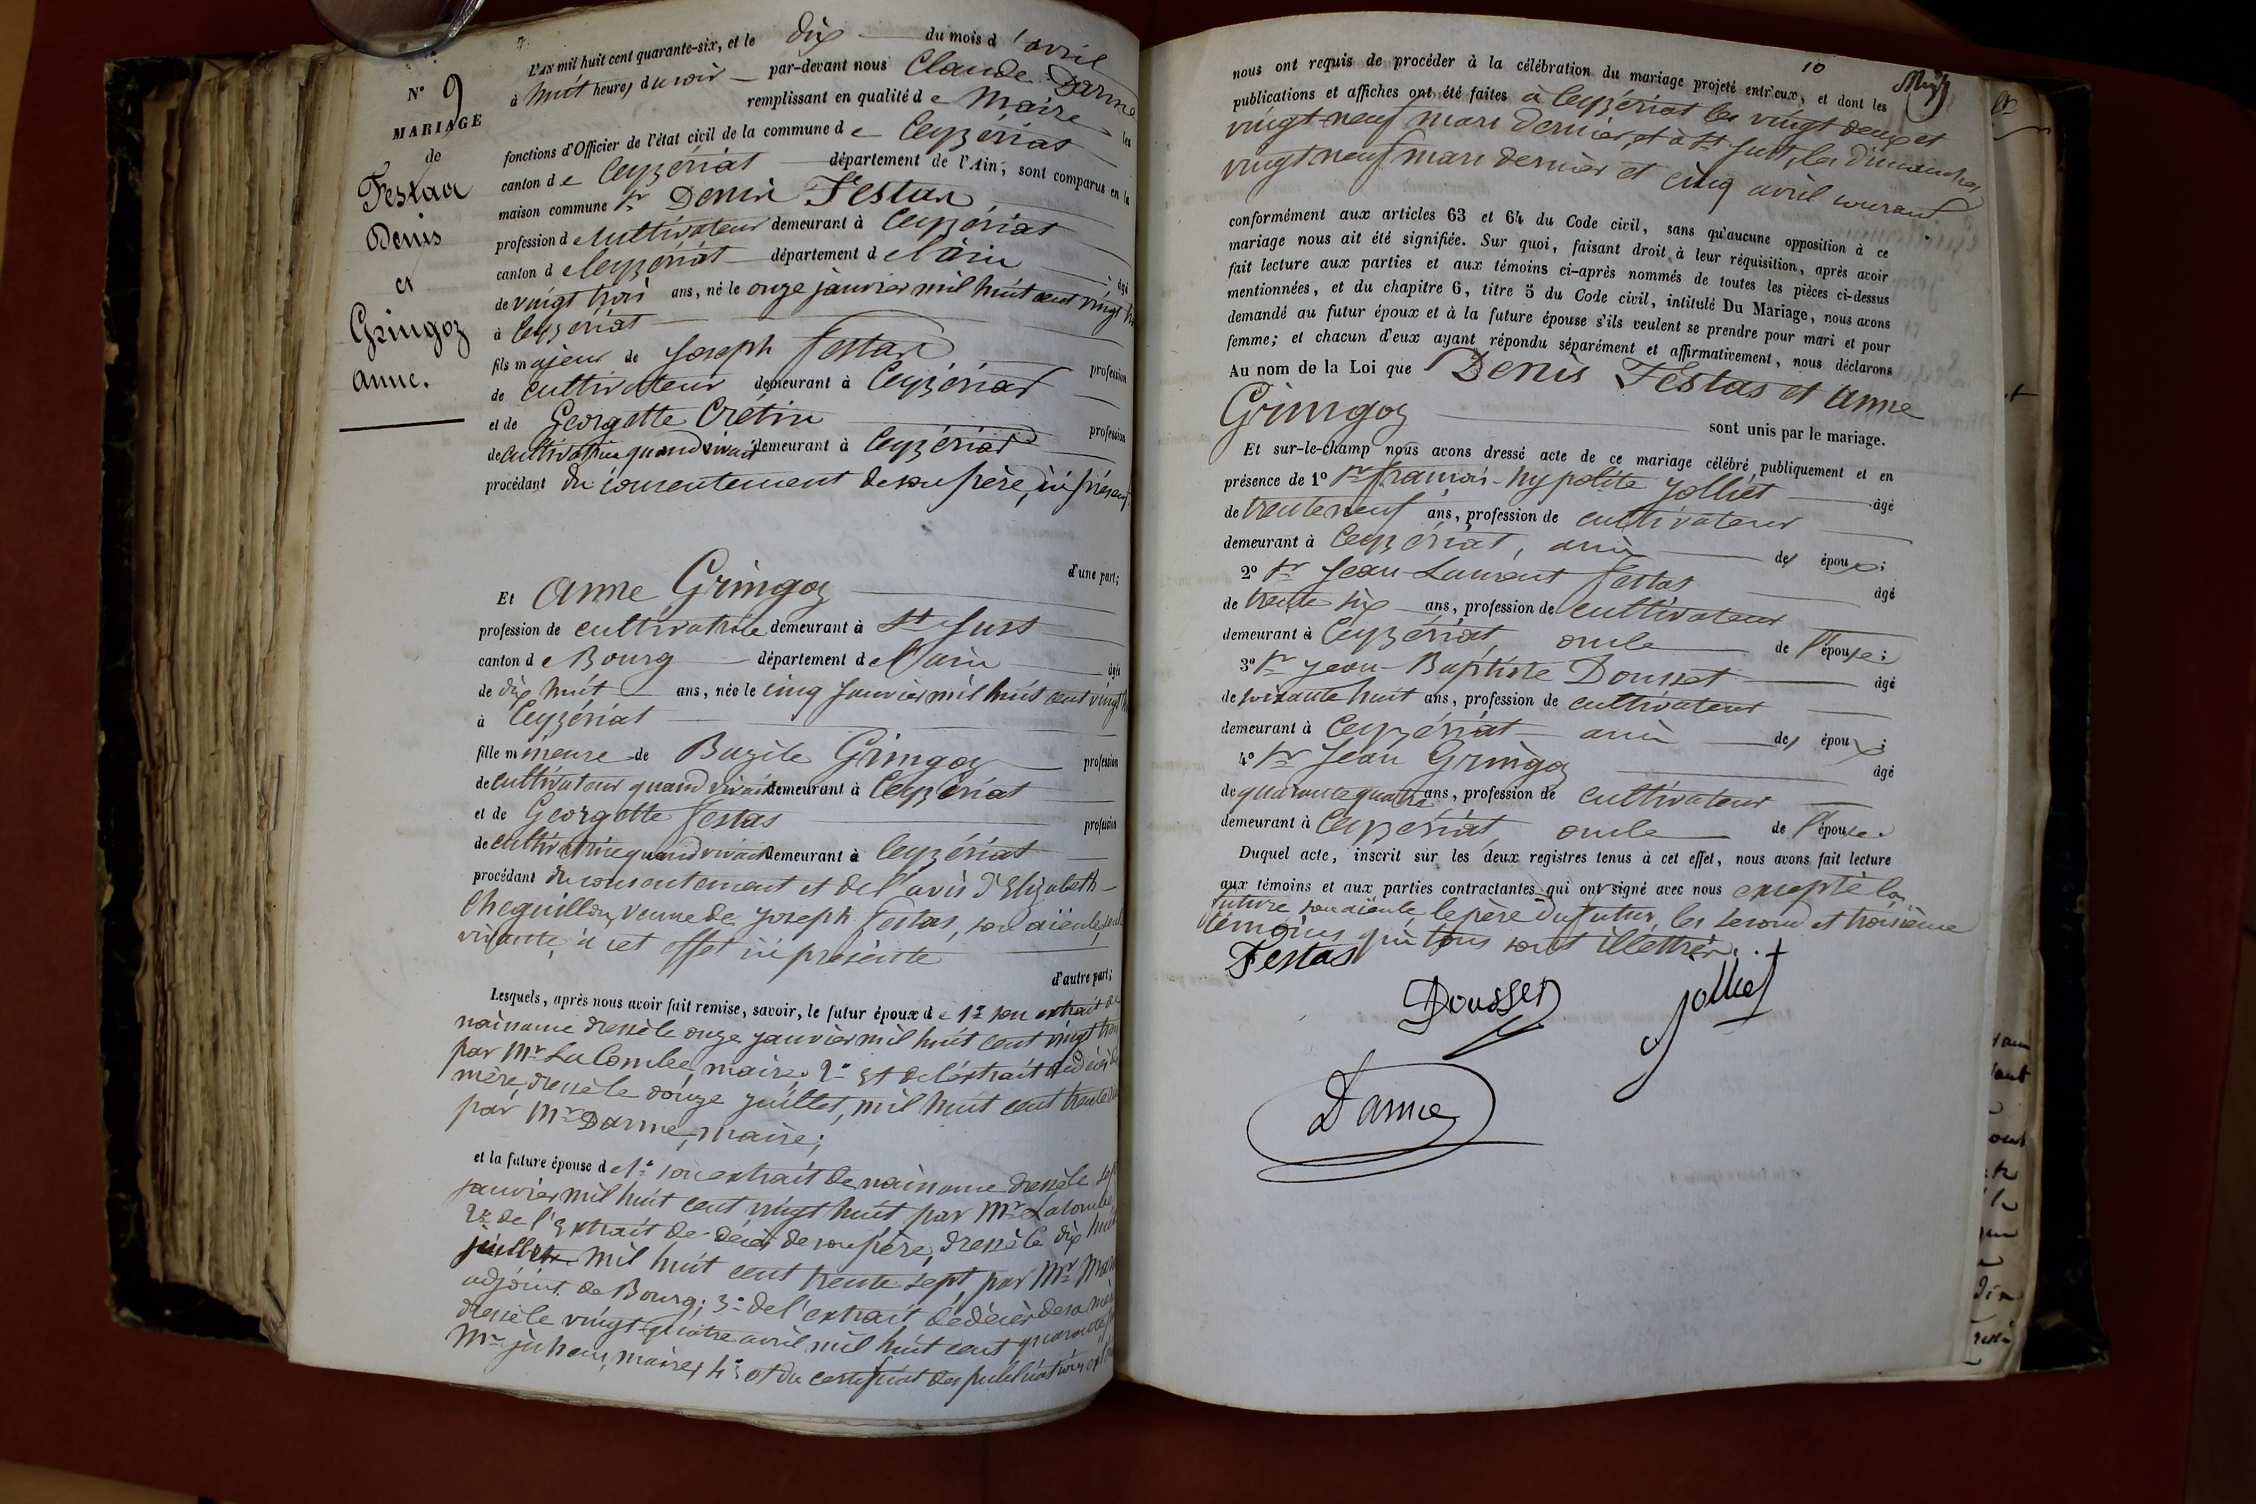 N° 9
MARIAGE
de
Festas
Denis
et
Gringoz
anne.
L'AN mil huit cent quarante-six, et le dix du mois d'avril
à huit heures du soir par-devant nous Claude Darme
remplissant en qualité de Maire les
fonctions d'Officier de l'état civil de la commune de Ceyzériat
canton de Ceyzériat département de l'Ain, sont comparus en la
maison commune Sr Denis Festas
profession de cultivateur demeurant à Ceyzériat
canton de Ceyzériat département de l'ain âgé
de vingt trois ans, né le onze janvier mil huit cent vingt
à Ceyzériat
fils majeur de Joseph Festas profession
de cultivateur demeurant à Ceyzériat
et de Georgette Crétin profession
de cultivatrice quand vivait demeurant à Ceyzériat
procédant du consentement de son père, ici présent
d'une part;
Et Anne Gringoz
profession de cultivatrice demeurant à St Just
canton de Bourg département de l'ain âgée
de dix huit ans, née le cinq Janvier mil huit cent vingt
à Ceyzériat
fille mineure de Bazile Gringoz profession
de cultivateur quand vivait demeurant à Ceyzériat
et de Georgette Festas profession
de cultivatrice quand vivait demeurant à Ceyzériat
procédant du consentement et de l'avis d'Elizabeth
Cheguillon, veuve de Joseph Festas, son aïeule, seule
vivante, à cet effet ici présente
d'autre part;
Lesquels, après nous avoir fait remise, savoir, le futur époux de 1° son extrait de
naissance dressé le onze janvier mil huit cent vingt trois
par Mr LaCombe, maire, 2° Et de l'extrait du décès de
mère, dressé le douze juillet, mil huit cent trente
par Mr Darme, maire;
et la future épouse de 1° son extrait de naissance dressé le
janvier mil huit cent vingt huit par Mr Lacombe
2° de l'Extrait de décès de son père, dressé le dix huit
juillet mil huit cent trente sept, par Mr
adjoint de Bourg; 3° de l'extrait de décès de sa mère
dressé le vingt-quatre avril mil huit cent quarante
Mr maire, 4° et du certificat des publications
10
nous ont requis de procéder à la célébration du mariage projeté entr'eux, et dont les
publications et affiches ont été faites à Ceyzériat les vingt deux et
vingt-neuf mars dernier, et à St Just, les dimanches
vingt neuf mars dernier et cinq avril courant
conformément aux articles 63 et 64 du Code civil, sans qu'aucune opposition à ce
mariage nous ait été signifiée. Sur quoi, faisant droit à leur réquisition, après avoir
fait lecture aux parties et aux témoins ci-après nommés de toutes les pièces ci-dessus
mentionnées, et du chapitre 6, titre 5 du Code civil, intitulé Du Mariage, nous avons
demandé au futur époux et à la future épouse s'ils veulent se prendre pour mari et pour
femme; et chacun d'eux ayant répondu séparément et affirmativement, nous déclarons
Au nom de la Loi que Denis Festas et Anne
Gringoz sont unis par le mariage.
Et sur-le-champ nous avons dressé acte de ce mariage célébré publiquement et en
présence de 1° Sr françois-hypolite Jolliet âgé
de trente neuf ans, profession de cultivateur
demeurant à Ceyzériat, ami des époux;
2° Sr Jean Laurent Festas âgé
de trente six ans, profession de cultivateur
demeurant à Ceyzériat, oncle de l'épouse;
3° Sr Jean-Baptiste Dousset âgé
de soixante huit ans, profession de cultivateur
demeurant à Ceyzériat ami des époux;
4° Sr Jean Gringoz âgé
de quarante quatre ans, profession de cultivateur
demeurant à Ceyzériat, oncle de l'épouse.
Duquel acte, inscrit sur les deux registres tenus à cet effet, nous avons fait lecture
aux témoins et aux parties contractantes qui ont signé avec nous excepté la
future, son aïeule, le père du futur, les second et troisième
témoins qui tous sont illettrés.
Festas
Dousset
Jolliet
Darme